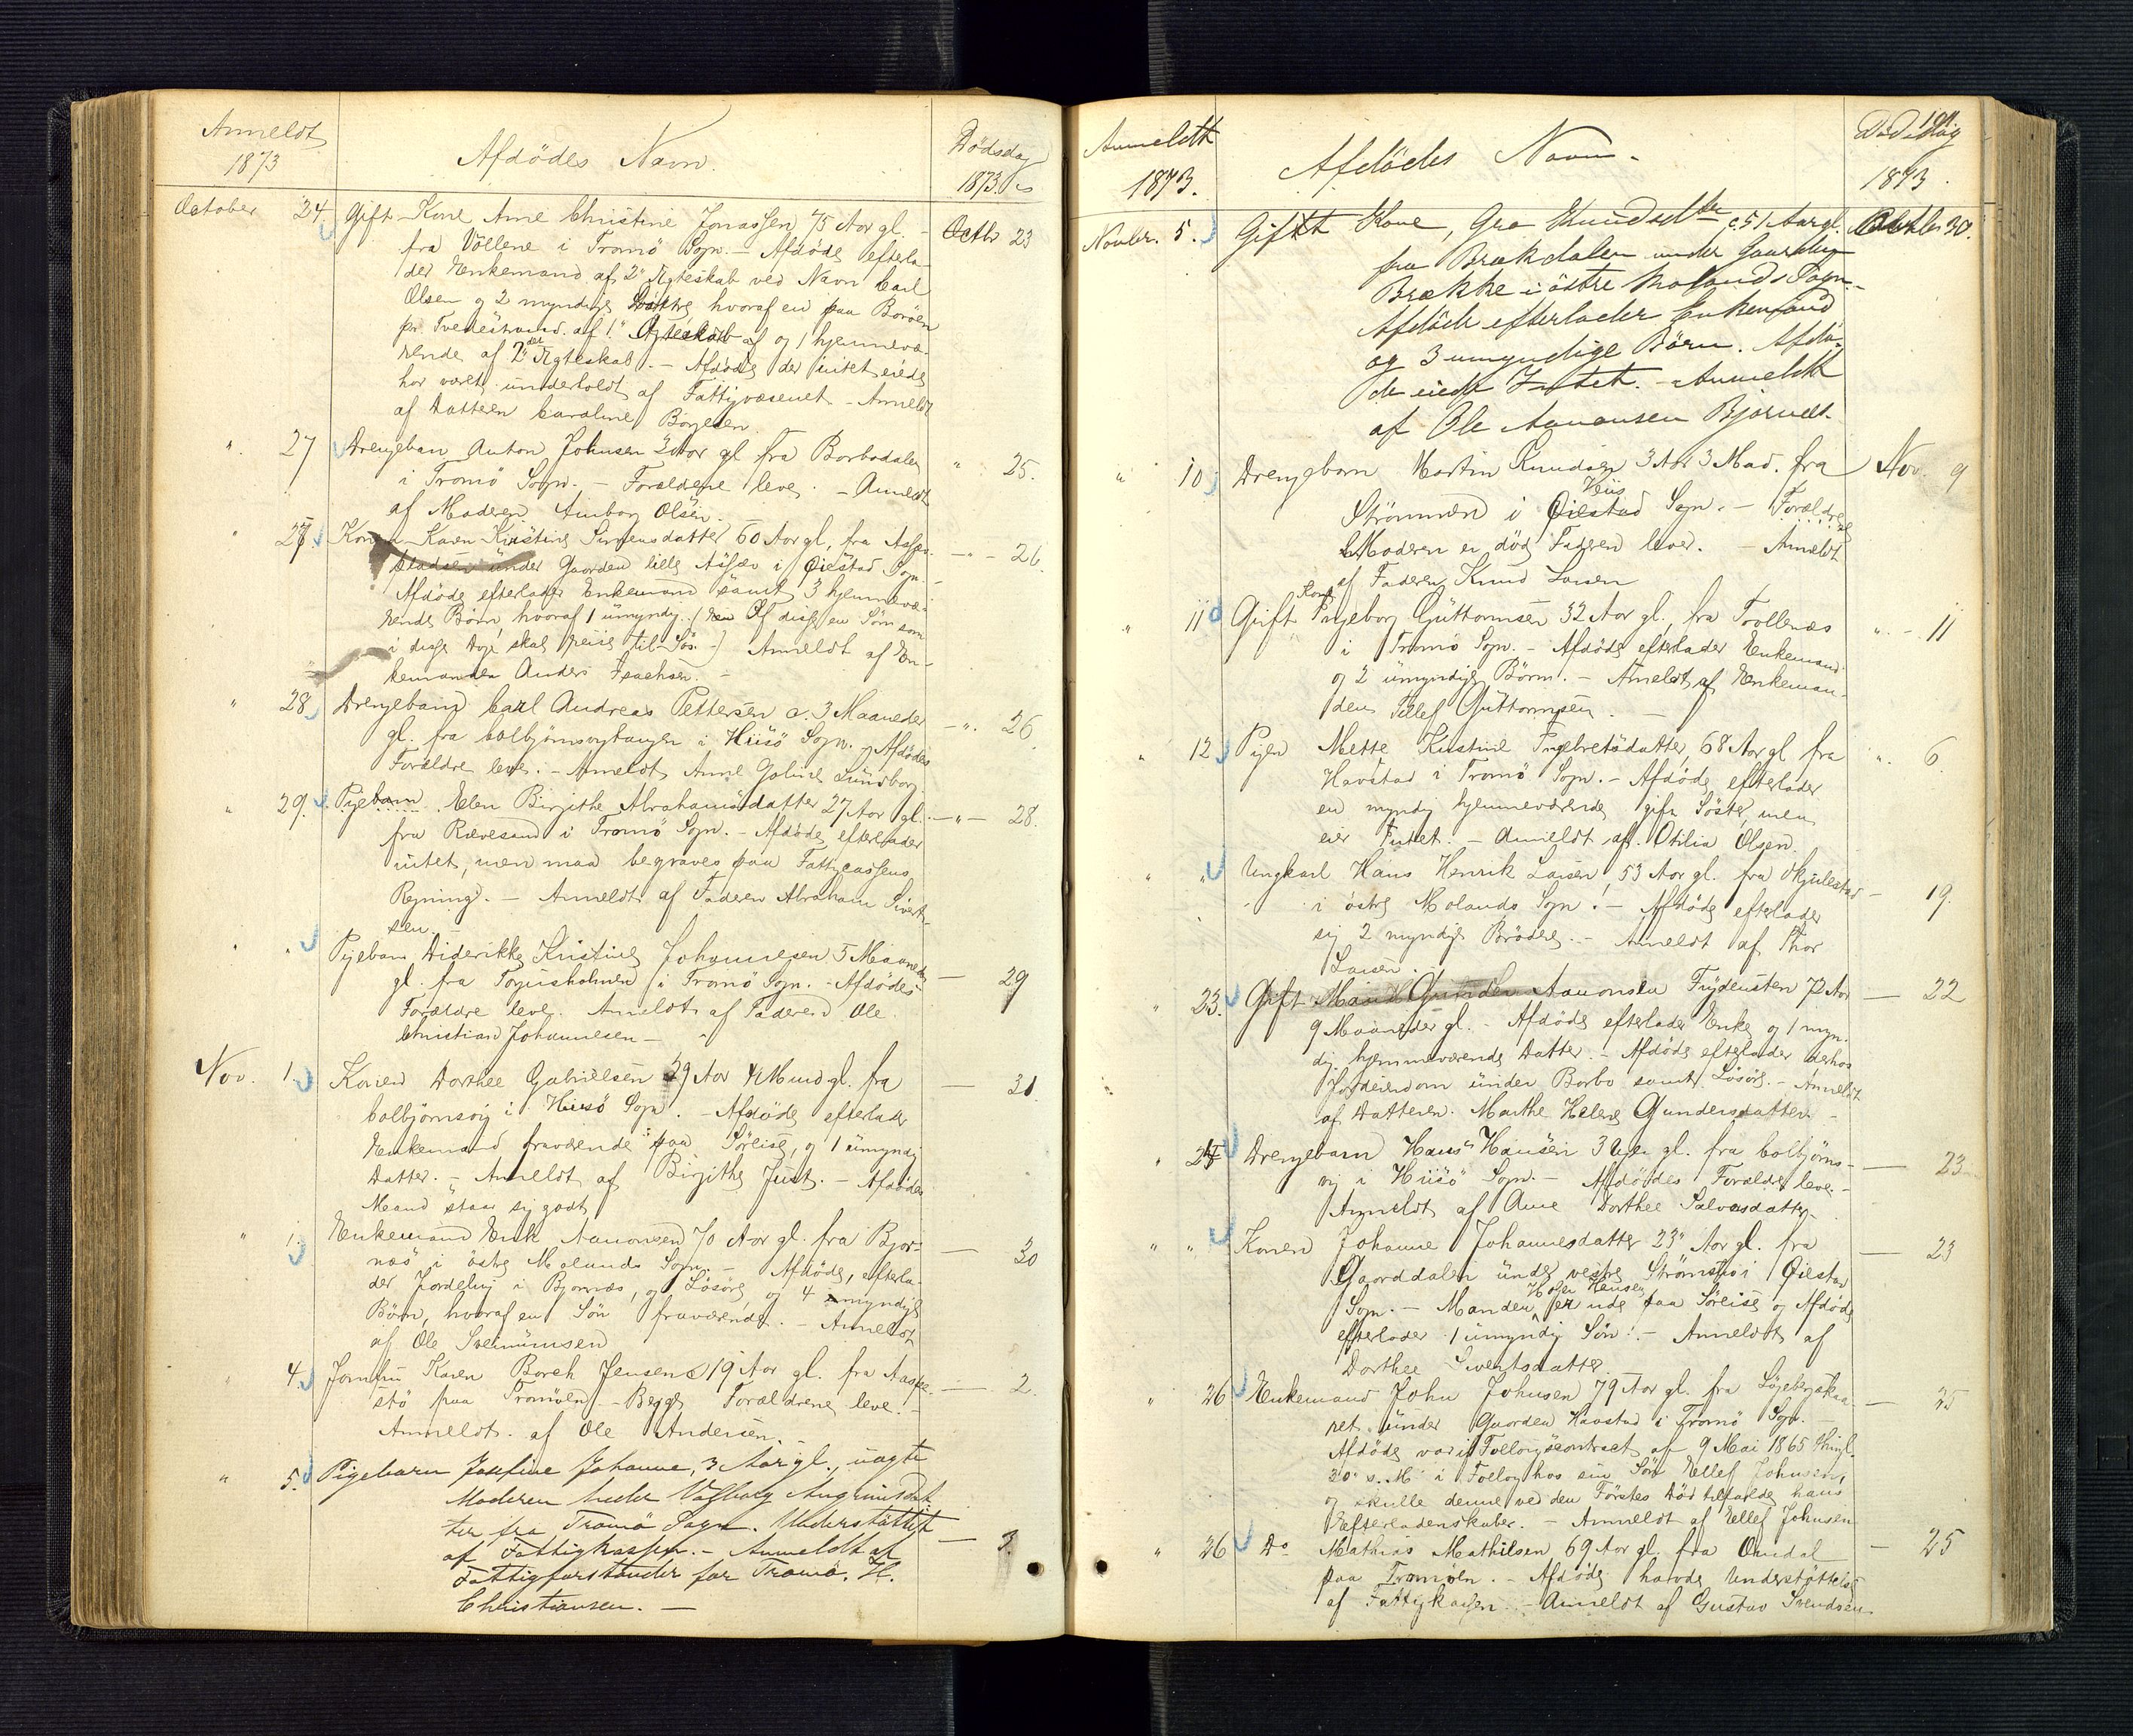 Anmeldt
1873
Afdödes Navn.
Dödsdag
1873.
October 24. Gift Kone Ane Christine Jonassen 75 Aar gl. - Octbr 23
fra Völlene i Tromö Sogn. - Afdöde efterla-
der Enkemand af 2det Ægteskab ved Navn Carl
Olsen og 2 myndige hvoraf en paa Boröen
pr. Tvedestrand af 1. Ægteskab og 1 hjemmevæ-
rende af 2det Ægteskab. - Afdöde der intet eiede
har været underholdt af Fattigvæsenet - Anmeldt
af Datteren Caroline Börjesen.
" 27 Drengebarn Anton Johnsen 2 Aar gl fra Barbodalen " 25.
i Tromö Sogn. - Forældrene leve. - Anmeldt
af Moderen Amborg Olsen.
" 27. Konen Karen Kristine Simensdatter 60 Aar gl, fra - " - 26.
pladsen under Gaarden lille i Öiestad Sogn.
Afdöde efterlader Enkemand samt 3 hjemmevæ-
rende Börn hvoraf 1 umyndig. (Af disse en Sön som
i disse Dage skal reise til Sös.) Anmeldt af En-
kemanden Anders Isachsen. -
" 28. Drengebarn Carl Andreas Pettersen c. 3 Maaneder - ". 26.
gl. fra Colbjörnsvighaugen i Hisö Sogn. - Afdödes
Forældre leve. - Anmeldt Anne Goline Lundborg.
" 29. Pigebarn Elen Birgithe Abrahamsdatter 27 Aar gl. - " - 28.
fra Rævesand i Tromö Sogn. - Afdöde efterlader
intet, men maa begraves paa Fattigcassens
Regning. - Anmeldt af Faderen Abraham Sivert-
sen. -
" " Pigebarn Diderikke Kristine Johannesen 5 Maaneder - 29
gl. fra Torjusholmen i Tromö Sogn. - Afdödes
Forældre leve. Anmeldt af Faderen Ole
Christian Johannesen -
Nov. 1. Konen Dorthee Gabrielsen 29 Aar 4 Mnd gl. fra - 31.
Colbjörnsvig i Hisö Sogn. - Afdöde efterlader
Enkemand fraværende paa Söreise, og 1 umyndig
Datter. - Anmeldt af Birgithe Just. - Afdödes
Mand staar sig godt
" 1. Enkemand Erik Aanonsen 70 Aar gl. fra Bjor- - 30
næs i östre Molands Sogn. - Afdöde, efterla-
der Jordelag i Bjornæs, og Lösöre og 4 myndige
Börn, hvoraf en Sön fraværende. - Anmeldt
af Ole Sveinumsen
" 4. Jomfru Karen Boreth Jensen 19 Aar gl. fra - 2.
stö paa Tromöen. - Begge Forældrene leve. -
Anmeldt af Ole Andersen. -
" 5. Pigebarn Josefine Johanne, 3 Aar gl., uægte
Moderen heder Valborg Angrimsdat-
ter fra Tromö Sogn. Understöttet
af Fattigkassen. - Anmeldt af - 3.
Fattigforstander for Tromö, H.
Christiansen. -
Anmeldt
1873.
Afdödes Navn.
191
Dödsdag
1873.
Novbr. 5. Gift Kone, Gro Knudsdtr c. 51 Aar gl. Octbr 30.
fra Brækdalen under Gaarden
Brække i östre Molands Sogn.
Afdöde efterlader Enkemand
og 3 umyndige Börn. Afdö-
de eiede Intet. - Anmeldt
af Ole Aanonsen Bjornæs.
" 10 Drengebarn Martin Knudsen 3 Aar 3 Mad. fra Nov. 9
Strömmen i Öiestad Hiis Sogn. - Forældre
Moderen er död Faderen lever. - Anmeldt
af Faderen Knud Larsen
" 11 Gift Kone Ingeborg Guttormsen 32 Aar gl., fra Trollenæs " - 11
i Tromö Sogn. - Afdöde efterlader Enkemand
og 2 umyndige Börn. - Anmeldt af Enkeman-
den Tellef Guttormsen. -
" 12 Pigen Mette Kirstine Ingebretsdatter, 68 Aar gl fra ". 6.
Havstad i Tromö Sogn. - Afdöde efterlader
en myndig hjemmeværende gift Söster, men
eier Intet. - Anmeldt af Otilia Olsen.
" " Ungkarl Hans Henrik Larsen 53 Aar gl. fra Skjulestad - 19.
i östre Molands Sogn. - Afdöde efterlader
sig 2 myndige Brödre. - Anmeldt af Thor
Larsen.
" 23. Gift Mand Gunder Aanonsen Frydensten 72 Aar - 22
9 Maaneder gl. - Afdöde efterlader Enke og 1 myn-
dig hjemmeværende Datter. - Afdöde efterlader derhos
Jordeiendom under Barbo samt Lösöre. - Anmeldt
af Datteren Marthe Helene Gundersdatter. -
" 24 Drengebarn Hans Hansen 3 Uger gl. fra Colbjörns- - 23
vig i Hisö Sogn. - Afdödes Forældre leve. -
Anmeldt af Ane Dorthee Salvesdatter.
" " Konen Johanne Johannesdatter 23 Aar gl. fra - 23
Gaarddalen under vestre Strömsbo i Öiestad
Sogn. - Manden Hansen er ude paa Söreise og Afdöde
efterlader 1 umyndig Sön. - Anmeldt af
Dorthee Sivertsdatter.
" 26 Enkemand John Johnsen 79 Aar gl. fra - 25
ret under Gaarden Havstad i Tromö Sogn.
Afdöde var if Foellogscontract af 9 Mai 1865 thingl.
30 s. M. i Foellog hos sin Sön Tellef Johnsen,
og skulle denne ved den Förstes Död tilfalde hans
Efterladenskaber. - Anmeldt af Tellef Johnsen
" 26 Do Mathias Mathilsen 69 Aar gl. fra Omdal - 25
paa Tromöen. - Afdöde havde Understöttelse
af Fattigkassen. - Anmeldt af Gustav Svendsen